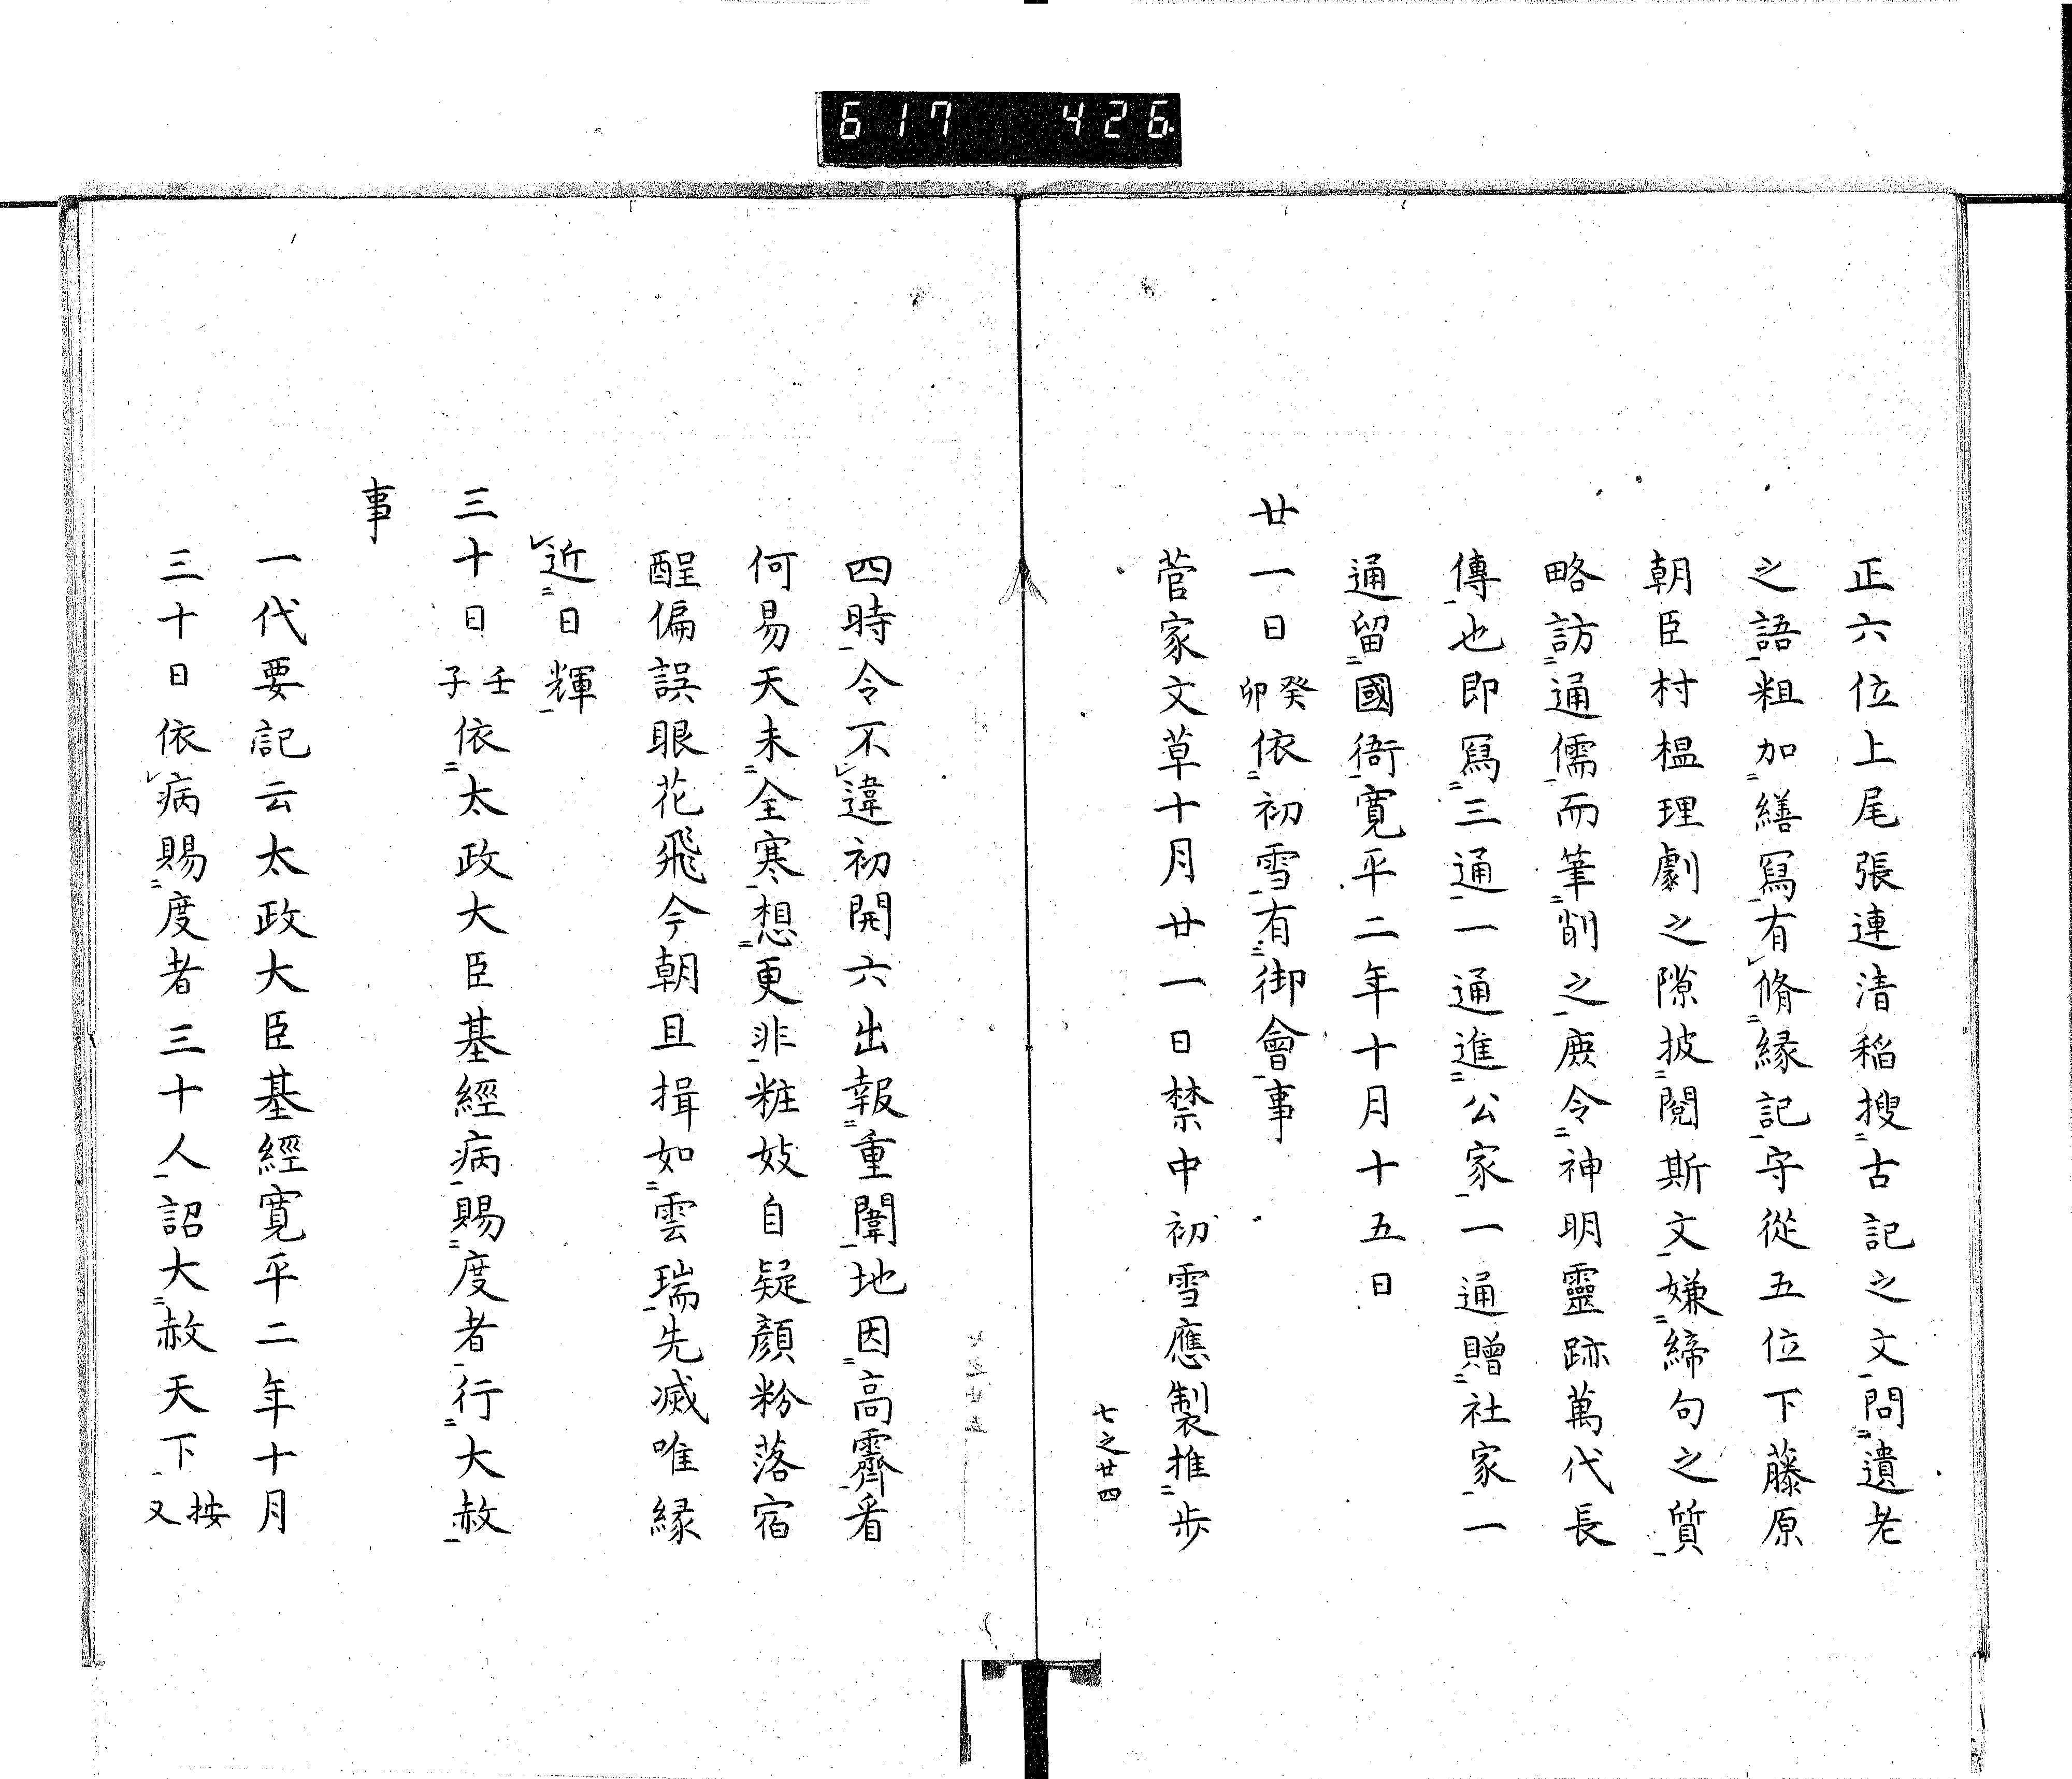 617 426
正六位上尾張連清稲搜古記之文問遺老
之語粗加繕冩有脩縁記守從五位下藤原
朝臣村椙理劇之隙披閲斯文嫌締句之質
略訪通儒而筆削之庻令神明靈跡萬代長
傳也即冩三通一通進公家一通贈社家一
通留國衙寛平二年十月十五日
廿一日癸卯依初雪有御會事
菅家文草十月廿一日禁中初雪應製推歩
七之廿四
四時令不違初開六出報重闈地因高霽看
何易天未全寒想更非粧妓自疑顔粉落宿
酲偏誤眼花飛今朝且揖如雲瑞先滅唯縁
近日輝
三十日壬子依太政大臣基經病賜度者行大赦
事
一代要記云太政大臣基經寛平二年十月
三十日依病賜度者三十人詔大赦天下按又